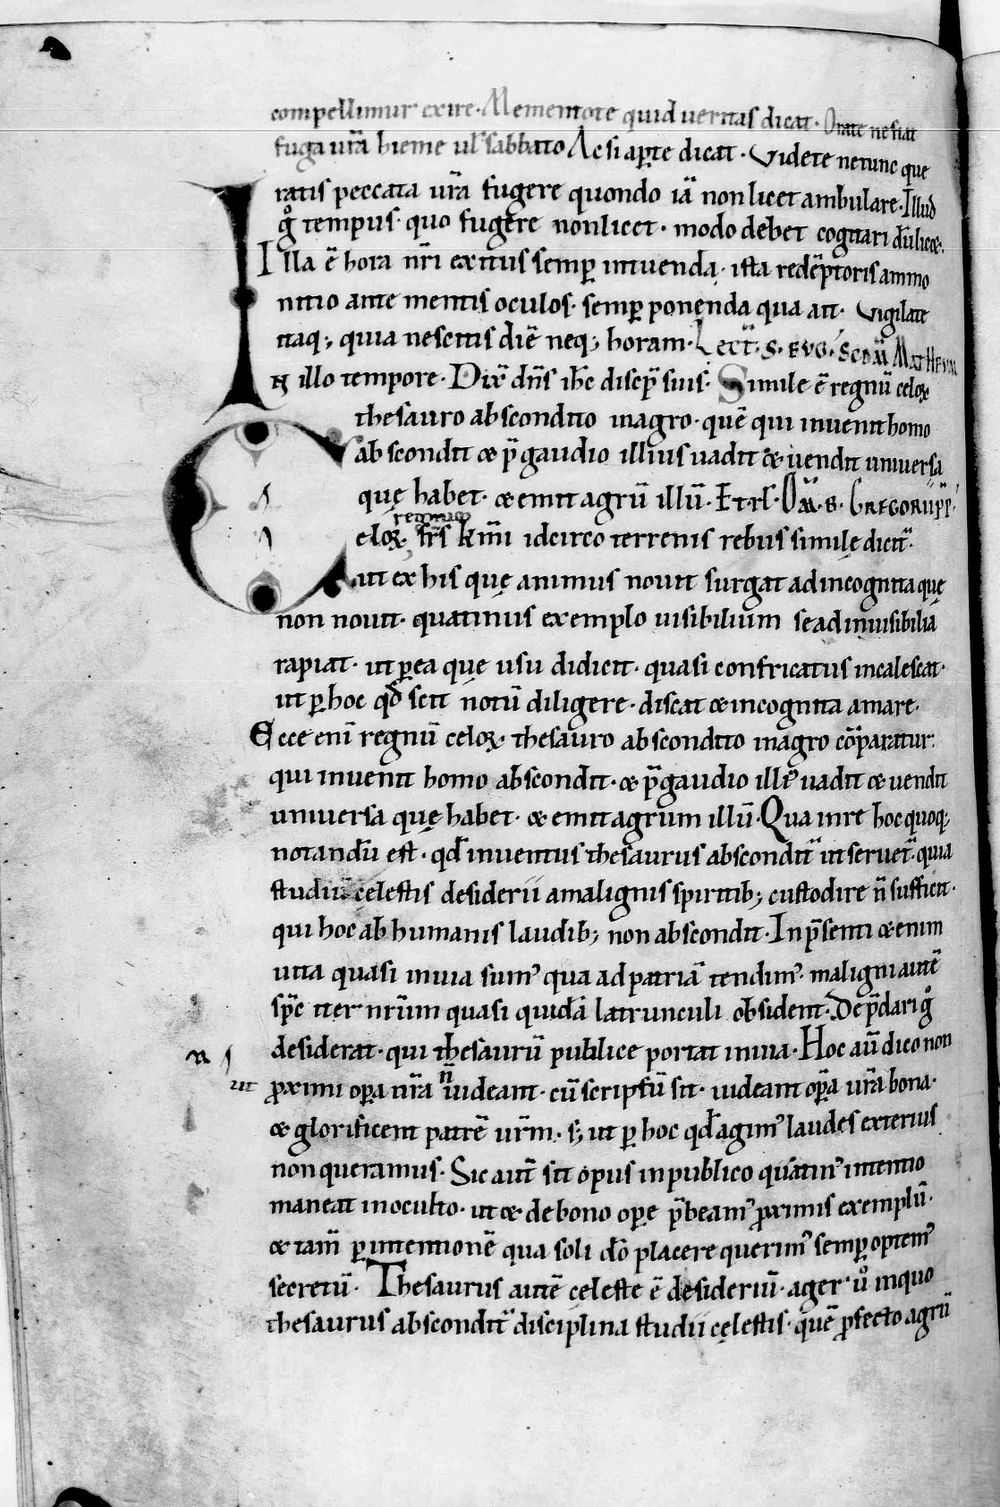 compellimur exire· Mementote quid veritas dicat· Orate ne fiat
fuga vr̄a hieme vl̄ sabbato Ac si aꝑte dicat· Videte ne tunc que
ratis peccata vr̄a fugere quondo iā non licet ambulare· Illud
gͦ tempus· quo fugere non licet· modo debet cogitari dū licet·
Illa ē hora nr̄i exitus semꝑ intuenda· ista redēptoris ammo
nitio ante mentis oculos· semꝑ ponenda qua ait· Vigilate
itaq; quia nescitis diē neq; horam· Lect̄· S· EVG· Scd̄m Matheum
IN illo tempore· Dix̄ dn̄s ih̄c discip̄ suis· Simile ē regnū celoꝝ
thesauro abscondito in agro· quē qui invenit homo
abscondit & p̄ gaudio illius vadit & vendit universa
quę habet· & emit agrū illū· Et rl̄· Om̄· B· Gregorii pp̄·
regnum
Celoꝝ· fr̄s km̄i idcirco terrenis rebus simile dicit̄·
ut ex his quę animus novit surgat ad incognita quę
non novit· quatinus exemplo visibilium se ad invisibilia
rapiat· ut ꝑ ea quę usu didicit· quasi confricatus incalescat·
ut ꝑ hoc qd̄ scit notū diligere· discat & incognita amare·
Ecce eni regnū celoꝝ· thesauro abscondito in agro cōparatur·
qui invenit homo abscondit· & p̄ gaudio illi᾽ vadit & vendit
universa quę habet· & emit agrum illū· Qua in re hoc quoq;
notandū est· qd̄ inventus thesaurus abscondit̄ ut servet̄· quia
studiū celestis desiderii a malignis spiritib; custodire n̄ sufficit·
qui hoc ab humanis laudib; non abscondit· In p̄senti &enim
vita quasi in via sum᾽ qua ad patriā tendim᾽· maligni autē
sp̄c iter nr̄um quasi quidā latrunculi obsident· Dep̄dari gͦ
desiderat· qui thesaurū publice portat in via· Hoc aū dico non
ut
ꝓximi oꝑa nr̄a n̄ videant· cū scriptū sit· videant oꝑa vr̄a bona·
& glorificent patrē vr̄m· s; ut ꝑ hoc qd̄ agim᾽ laudes exterius
non queramus· Sic aut̄ sit opus in publico quatin᾽ intentio
maneat in oculto· ut & de bono oꝑe p̄beam᾽ ꝓximis exemplū·
& tam̄ ꝑ intentionē qua soli dō placere querim᾽ semꝑ optem᾽
secretū· Thesaurus autē celeste ē desideriū· ager vͦ in quo
thesaurus abscondit̄ disciplina studii cęlestis· quē ꝓfecto agrū